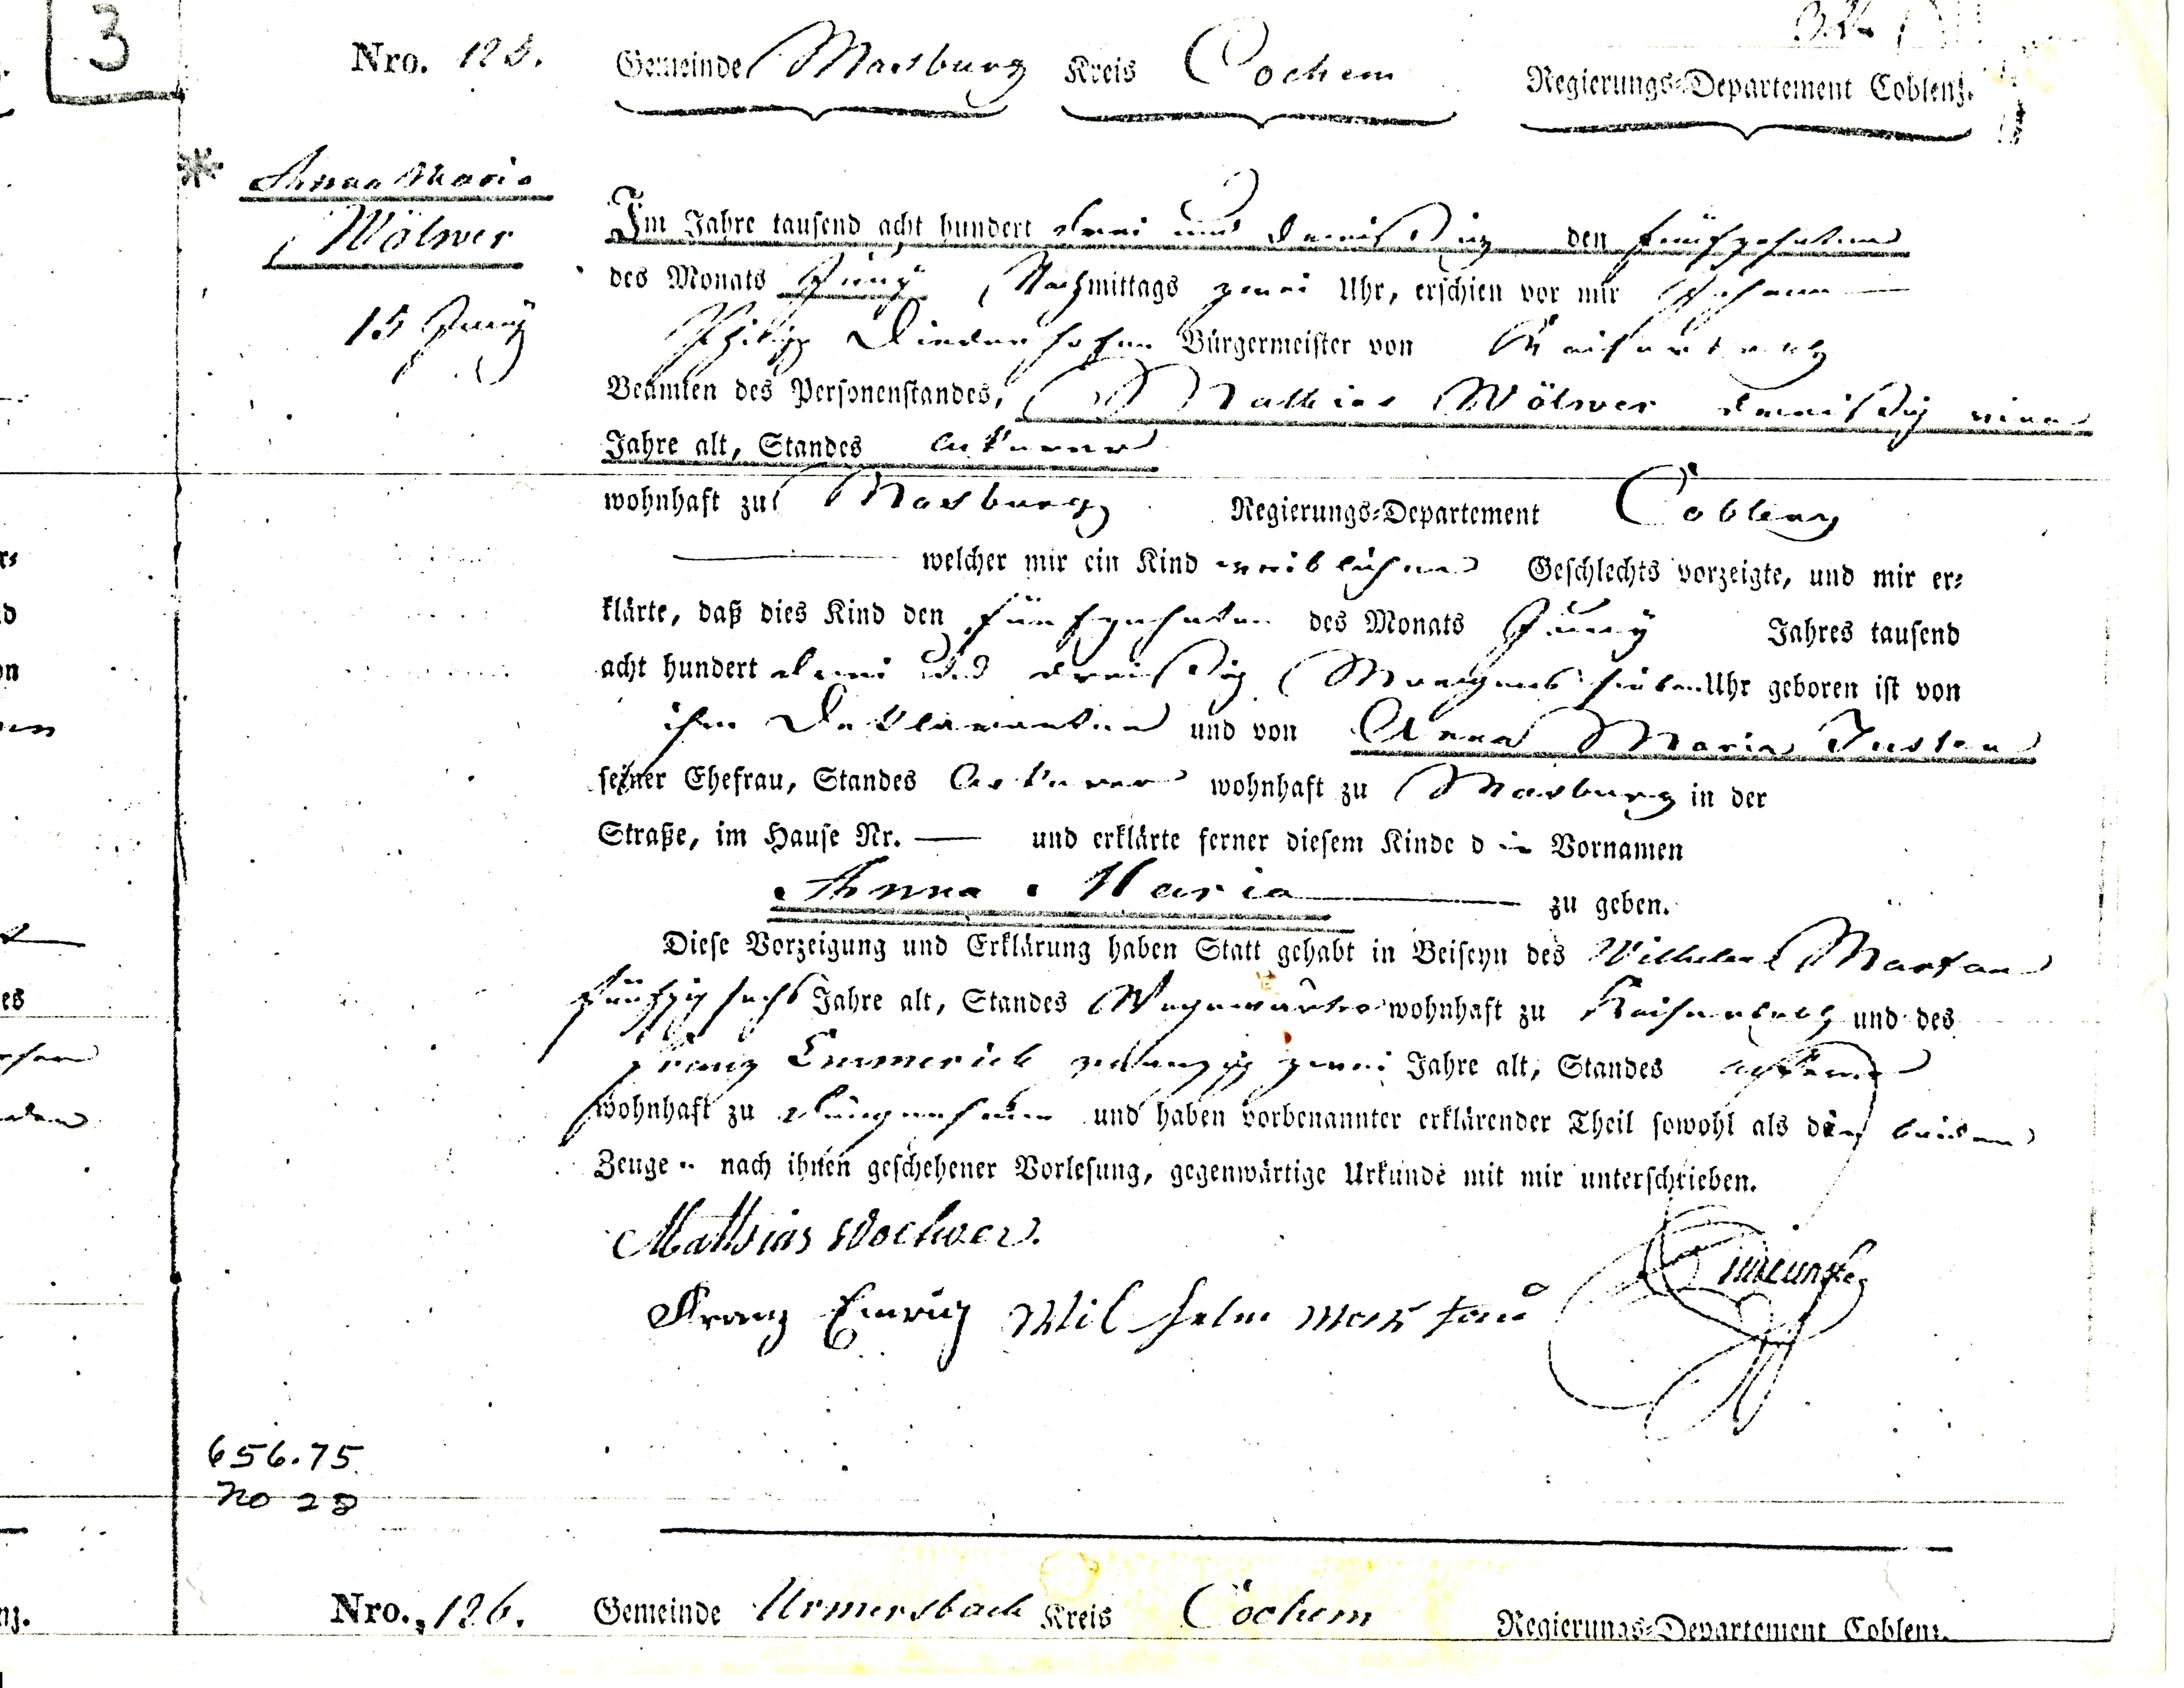 3
Nro. 125. Gemeinde Masburg Kreis Cochem Regierungs-Departement Coblenz.
Anna Maria
Wölwer
15 Juny
Im Jahre tausend acht hundert drei und dreißig den fünfzehnten
des Monats Juny Nachmittags zwei Uhr, erschien vor mir Johann
Philipp Bürgermeister von Kaisersesch
Beamten des Personenstandes, Mathias Wölwer dreißig
Jahre alt, Standes Ackerer
wohnhaft zu Masburg Regierungs-Departement Coblenz
welcher mir ein Kind weiblichen Geschlechts vorzeigte, und mir er-
klärte, daß dies Kind den fünfzehnten des Monats Juny Jahres tausend
acht hundert drei und dreißig Morgens sieben Uhr geboren ist von
ihm Deklaranten und von Anna Maria Justen
seiner Ehefrau, Standes Ackerer wohnhaft zu Masburg in der
Straße, im Hause Nr. — und erklärte ferner diesem Kinde die Vornamen
Anna Maria zu geben.
Diese Vorzeigung und Erklärung haben Statt gehabt in Beiseyn des Wilhelm Martan
fünfzig sechs Jahre alt, Standes Wegewärter wohnhaft zu Kaisersesch und des
Franz Emmerich zwanzig zwei Jahre alt, Standes Ackerer
wohnhaft zu und haben vorbenannter erklärender Theil sowohl als die beiden
Zeuge n nach ihnen geschehener Vorlesung, gegenwärtige Urkunde mit mir unterschrieben.
Mathias Woelwer.
Franz Emrich Wilhelm
656.75
No 28
Nro. 126. Gemeinde Urmersbach Kreis Cochem Regierungs-Departement Coblenz.